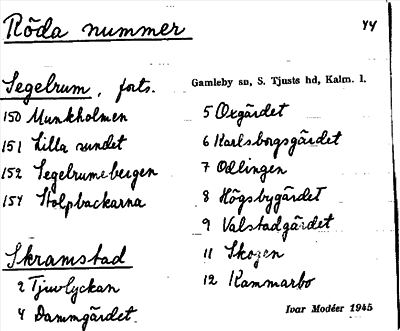 Röda nummer
44
Segelrum, forts.
150 Munkholmen
151 Lilla sundet
152 Segelrumsbergen
154 Stolpbackarna
Skramstad
2 Tjuvlyckan
4 Dammgärdet.
Gamleby sn, S. Tjusts hd, Kalm. l.
5 Oxgärdet
6 Karlsborgsgärdet
7 Odlingen
8 Högsbygärdet
9 Valstadgärdet
11 Skogen
12 Kammarbo
Ivar Modéer 1945